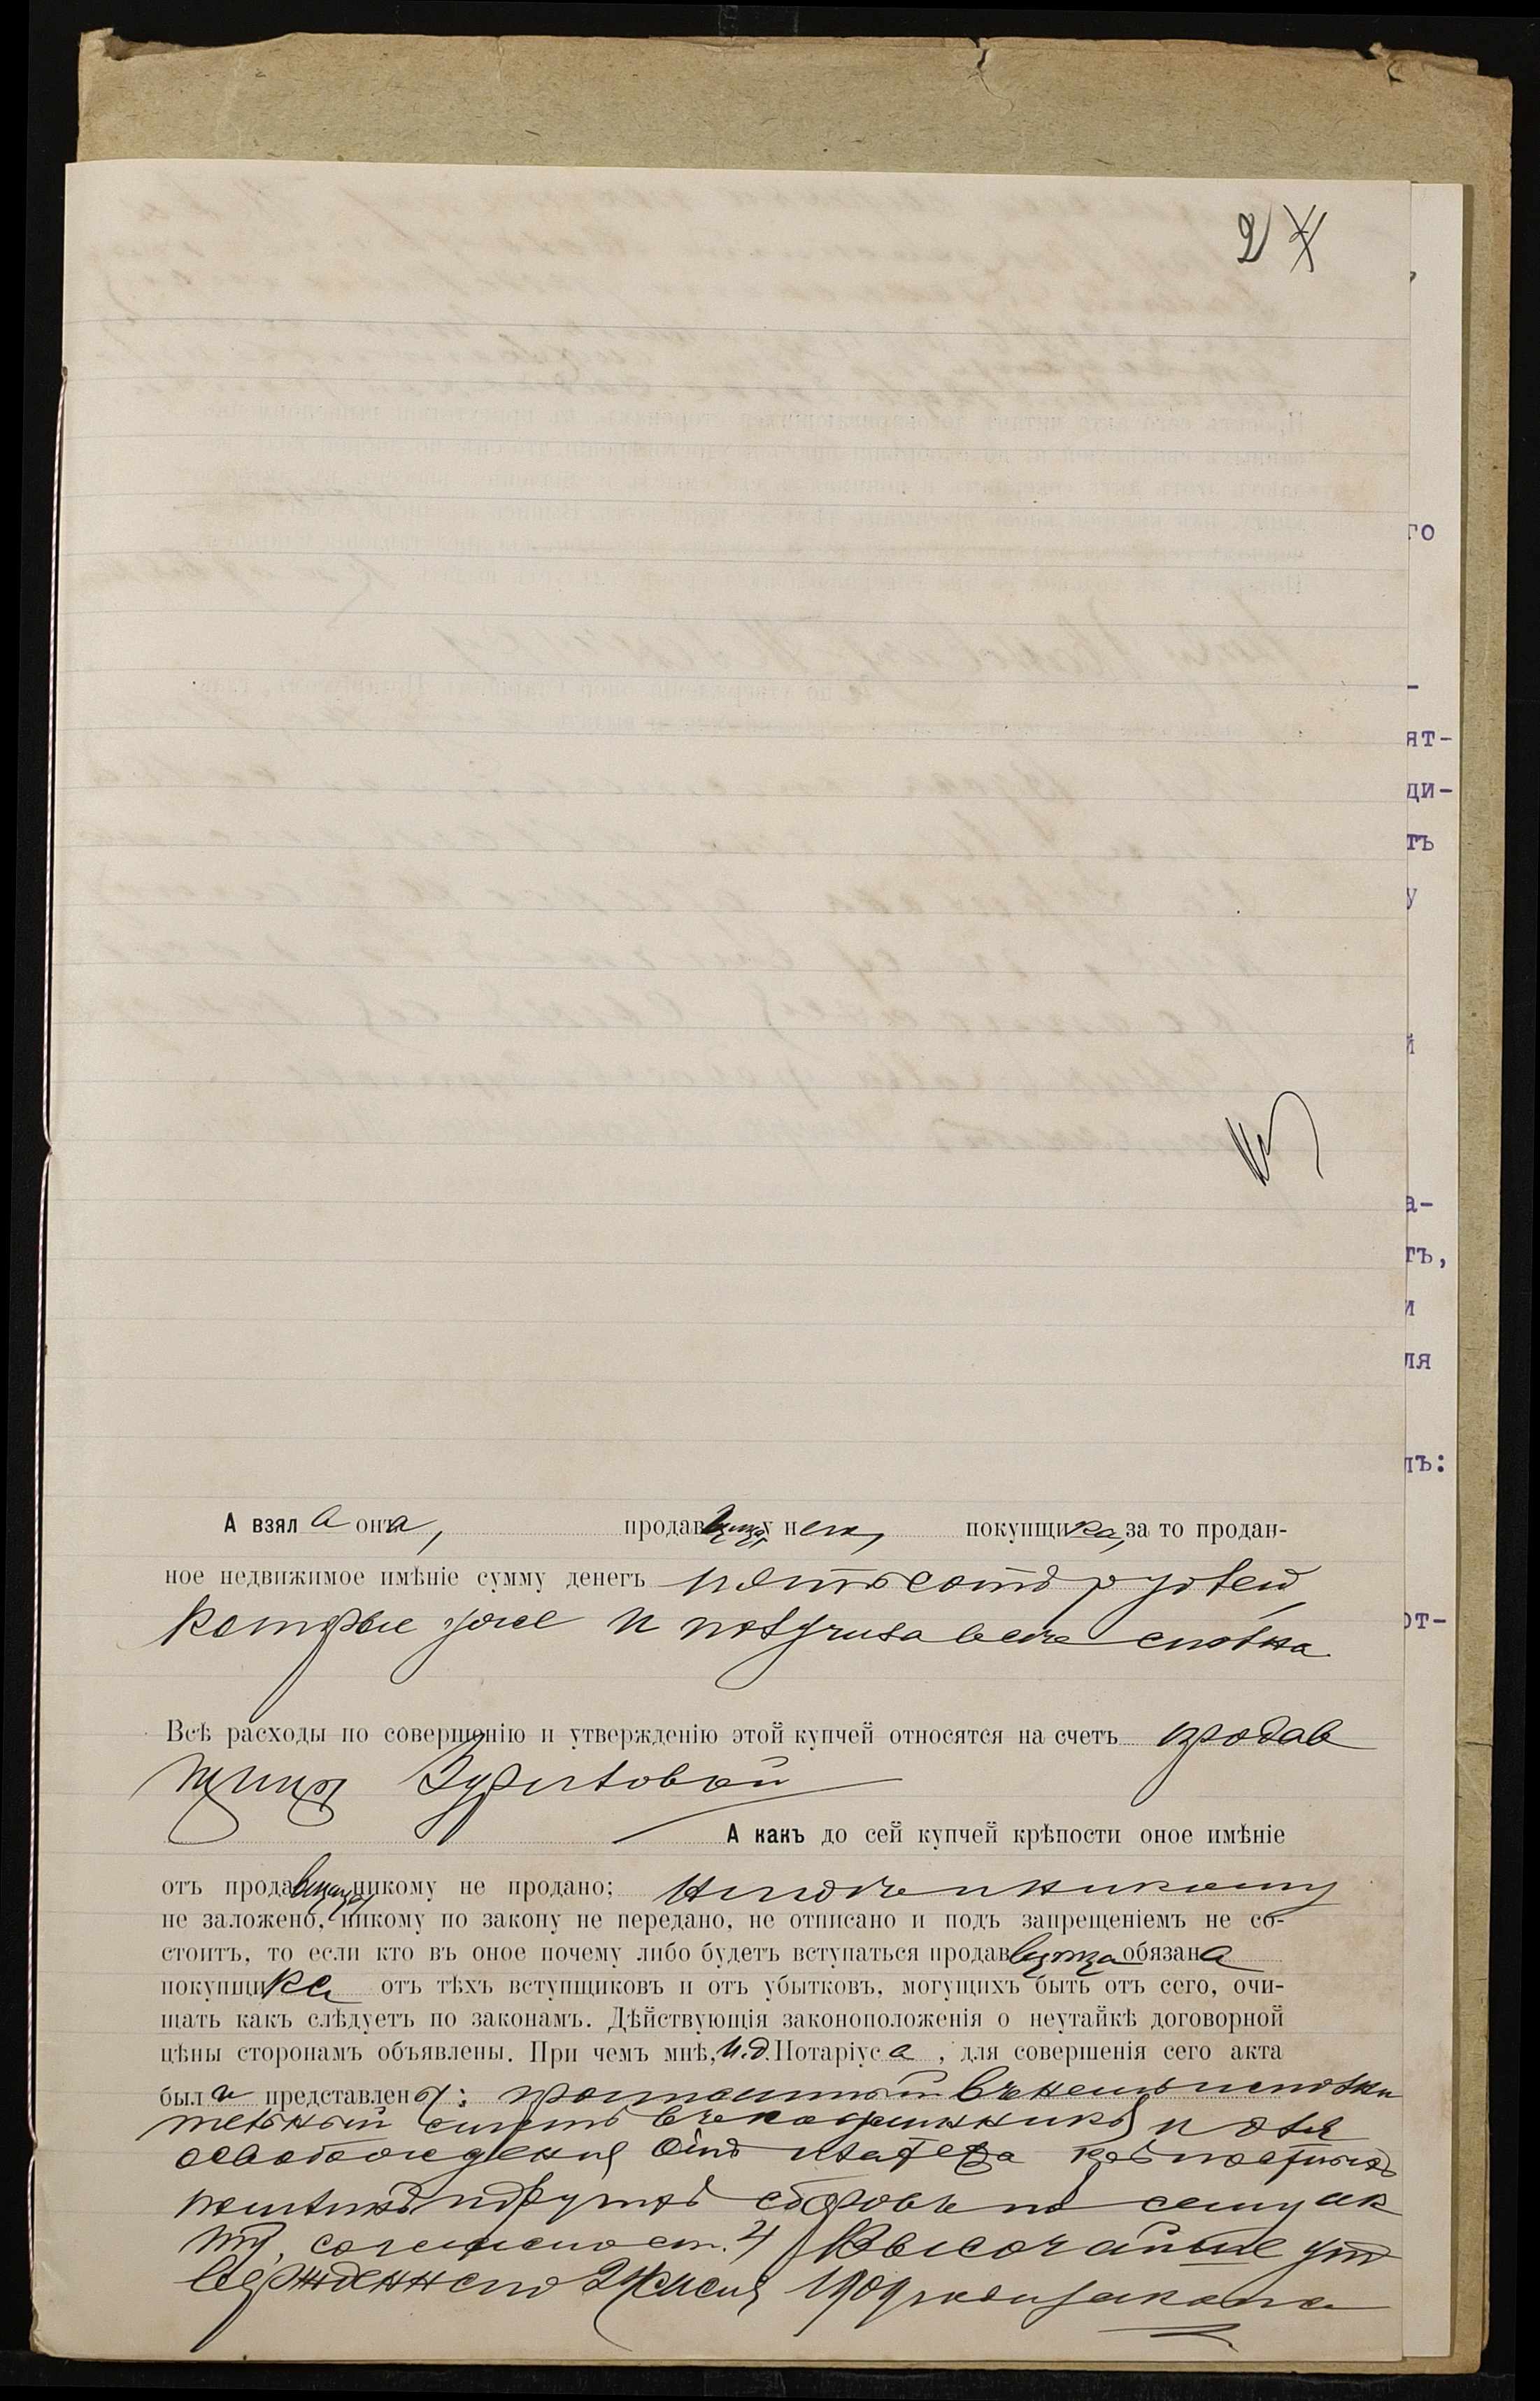 2
А взяла она, продавщица, у него, покупщика, за то продан-
ное недвижимое имѣніе сумму денегъ пятьсотъ рублей
которые уже и получила все сполна
Всѣ расходы по совершенію и утвержденію этой купчей относятся на счетъ продав
щицы
А какъ до сей купчей крѣпости оное имѣніе
отъ продавщицы никому не продано; нигдѣ и никому
не заложено, никому по закону не передано, не отписано и подъ запрещеніемъ не со-
стоитъ, то если кто въ оное почему либо будетъ вступаться продавщица обязана
покупщика отъ тѣхъ вступщиковъ и отъ убытковъ, могущихъ быть отъ сего, очи-
щать какъ слѣдуетъ по законамъ. Дѣйствующія законоположенія о неутайкѣ договорной
цѣны сторонамъ объявлены. При чемъ мнѣ, И.д. Нотаріуса, для совершенія сего акта
были представлены:
тельный листъ и для
освобожденія отъ платежа крѣпостныхъ
пошлинъ и другихъ сборовъ по сему ак
ту, согласно ст. 4 Высочайше утъ
вержденнаго 2 Іюня закона
го
-
ят-
ди-
тъ
у
й
а-
тъ,
и
ля
лъ:
от-